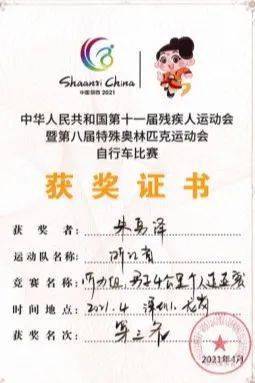 Shaanxi China
中国陕西 2021
中华人民共和国第十一届残疾人运动会
暨第八届特殊奥林匹克运动会
自行车比赛
获奖证书
获 奖 者：
运动队名称：浙江省
竞赛名称：听力组 男子4公里个人追逐赛
时间地点：2021.4 深圳 龙岗
获奖名次：第三名
2021年4月